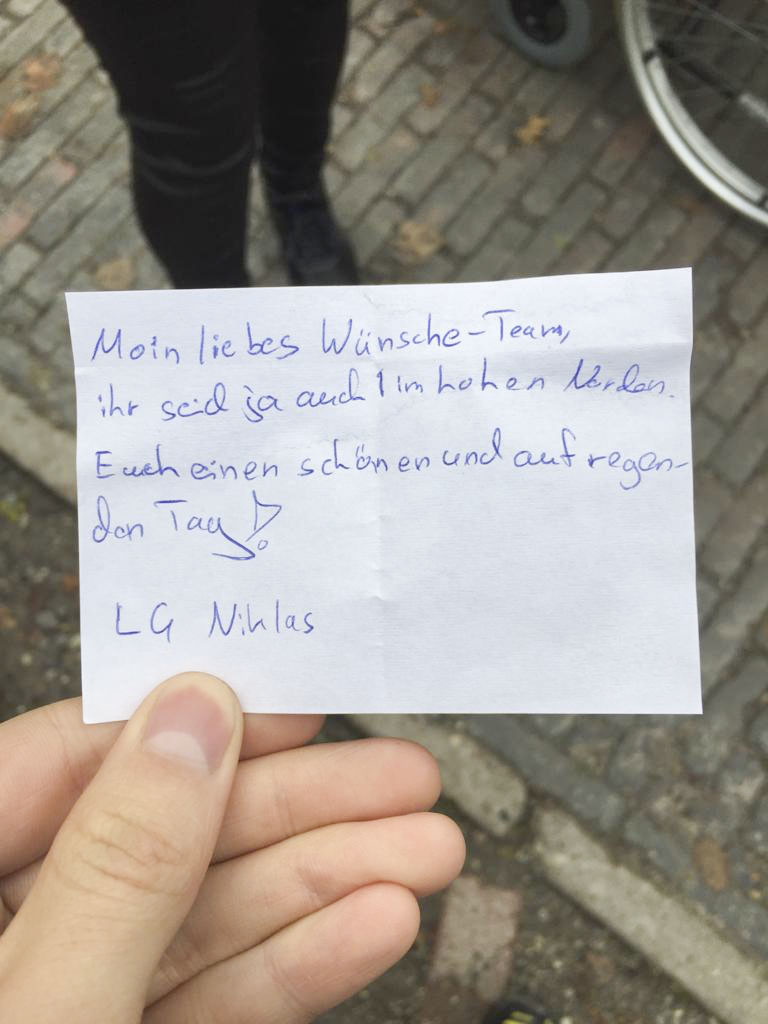 Moin liebes Wünsche-Team,
ihr seid ja auch 1 im hohen Norden.
Euch einen schönen und aufregen-
den Tag!
LG Niklas